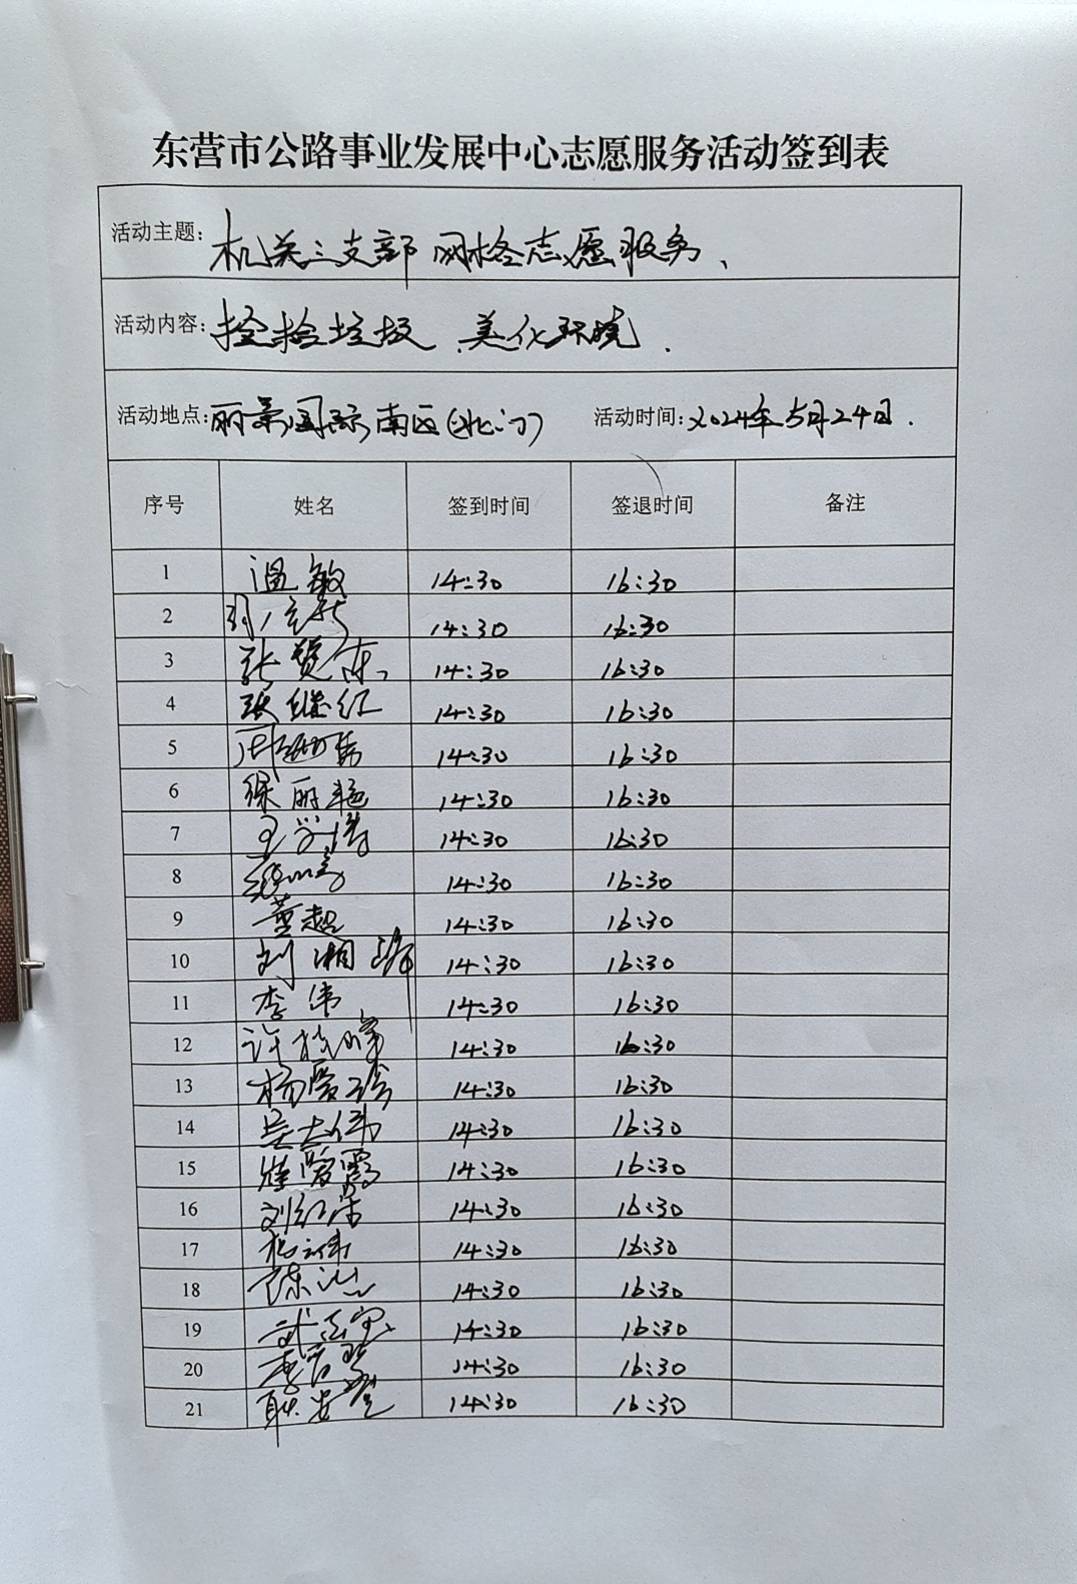 东营市公路事业发展中心志愿服务活动签到表
活动主题: 机关三支部网格志愿服务、
活动内容: 捡拾垃圾、美化环境.
活动地点: 丽景国际南区(北门) 活动时间: 2024年5月24日.
序号 姓名 签到时间 签退时间 备注
1 温敏 14:30 16:30
2 14:30 16:30
3 张赞东 14:30 16:30
4 张继红 14:30 16:30
5 14:30 16:30
6 徐丽艳 14:30 16:30
7 14:30 16:30
8 14:30 16:30
9 董超 14:30 16:30
10 刘湘 14:30 16:30
11 李伟 14:30 16:30
12 许 14:30 16:30
13 杨爱玲 14:30 16:30
14 吴志伟 14:30 16:30
15 爱霞 14:30 16:30
16 刘红 14:30 16:30
17 14:30 16:30
18 陈 14:30 16:30
19 武 14:30 16:30
20 李 14:30 16:30
21 耿安 14:30 16:30